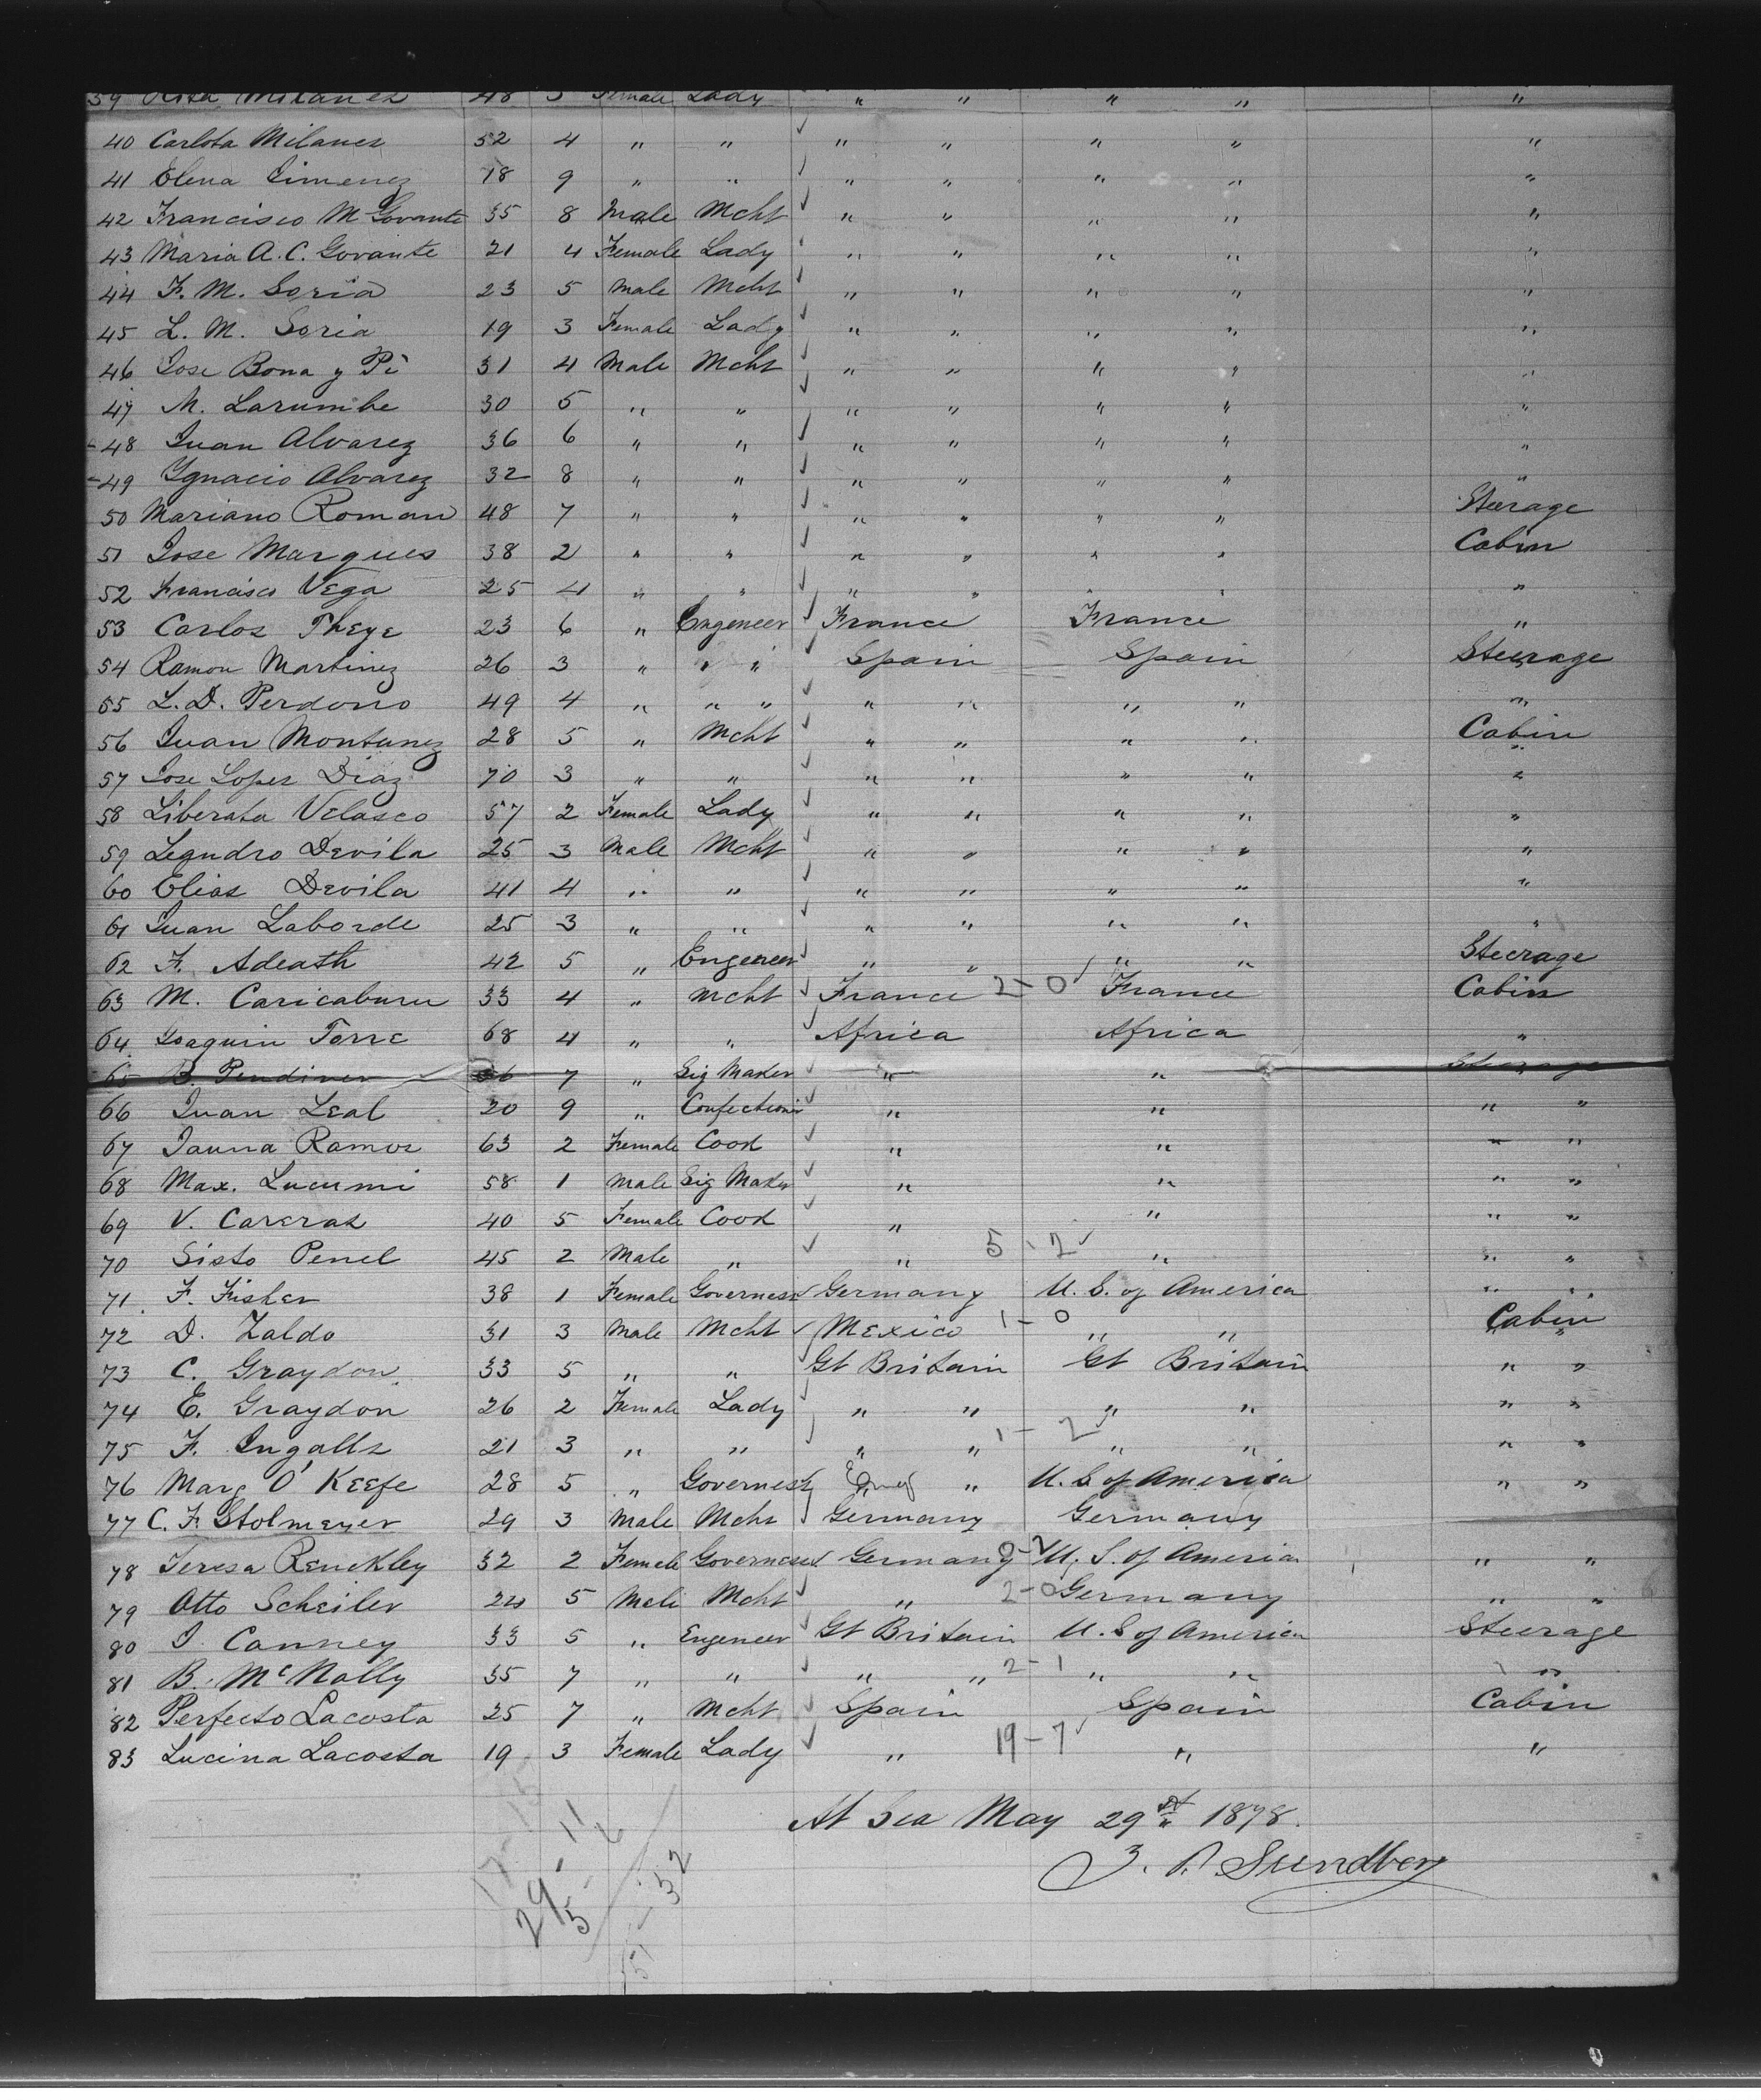 39 Rosa Milanes 48 3 Female Lady " " " " "
40 Carlota Milanes 52 4 " " " " " " "
41 Elena Jimenez 18 9 " " " " " " "
42 Francisco M Govante 35 8 Male Mcht " " " " "
43 Maria A. C. Govante 21 4 Female Lady " " " " "
44 F. M. Soria 23 5 Male Mcht " " " " "
45 L. M. Soria 19 3 Female Lady " " " " "
46 Jose Bona y Pi 31 4 Male Mcht " " " " "
47 M. Larumbe 30 5 " " " " " " "
48 Juan Alvarez 36 6 " " " " " " "
49 Ygnacio Alvarez 32 8 " " " " " " "
50 Mariano Roman 48 7 " " " " " " Steerage
51 Jose Marques 38 2 " " " " " " Cabin
52 Francisco Vega 25 4 " " " " " " "
53 Carlos Theye 23 6 " Engeneer France France "
54 Ramon Martinez 26 3 " " " Spain Spain Steerage
55 L. D. Perdomo 49 4 " " " " " " " "
56 Juan Montunez 28 5 " Mcht " " " " Cabin
57 Jose Lopez Diaz 70 3 " " " " " " "
58 Liberata Velasco 57 2 Female Lady " " " " "
59 Leandro Devila 25 3 Male Mcht " " " " "
60 Elias Devila 41 4 " " " " " " "
61 Juan Laborde 25 3 " " " " " " "
62 F. Adeath 42 5 " Engeneer " " " " Steerage
63 M. Caricaburu 33 4 " Mcht France 2-0 France Cabin
64 Joaquin Torre 68 4 " " Africa Africa "
65 B. Pendiver 7 " Sig Maker " " Steerage
66 Juan Leal 20 9 " Confectioner " " " "
67 Jauna Ramos 63 2 Female Cook " " " "
68 Max. Lucumi 58 1 Male Sig Maker " " " "
69 V. Careras 40 5 Female Cook " " " "
70 Sisto Penel 45 2 Male " " 5-2 " " "
71 F. Fisher 38 1 Female Governess Germany U. S. of America " "
72 D. Zaldo 31 3 Male Mcht Mexico 1-0 " " Cabin
73 C. Graydon 33 5 " " Gt Britain Gt Britain " "
74 E. Graydon 26 2 Female Lady " " " " " "
75 F. Ingalls 21 3 " " " " 1-2 " " " "
76 Marg O'Keefe 28 5 " Governess Eng " U. S. of America " "
77 C. F. Stolmeyer 29 3 Male Mcht Germany Germany
78 Teresa Renckley 32 2 Female Governess Germany 0-2 U. S. of America " "
79 Otto Scheiler 24 5 Male Mcht " 2-0 Germany " "
80 J. Canney 33 5 " Engeneer Gt Britain U. S of America Steerage
81 B. McNally 35 7 " " " " 2-1 " " "
82 Perfecto Lacosta 25 7 " Mcht Spain Spain Cabin
83 Lucina Lacosta 19 3 Female Lady " 19-7 " "
At Sea May 29th 1878.
Sundberg
29 - 11
5 - 2
51 - 32